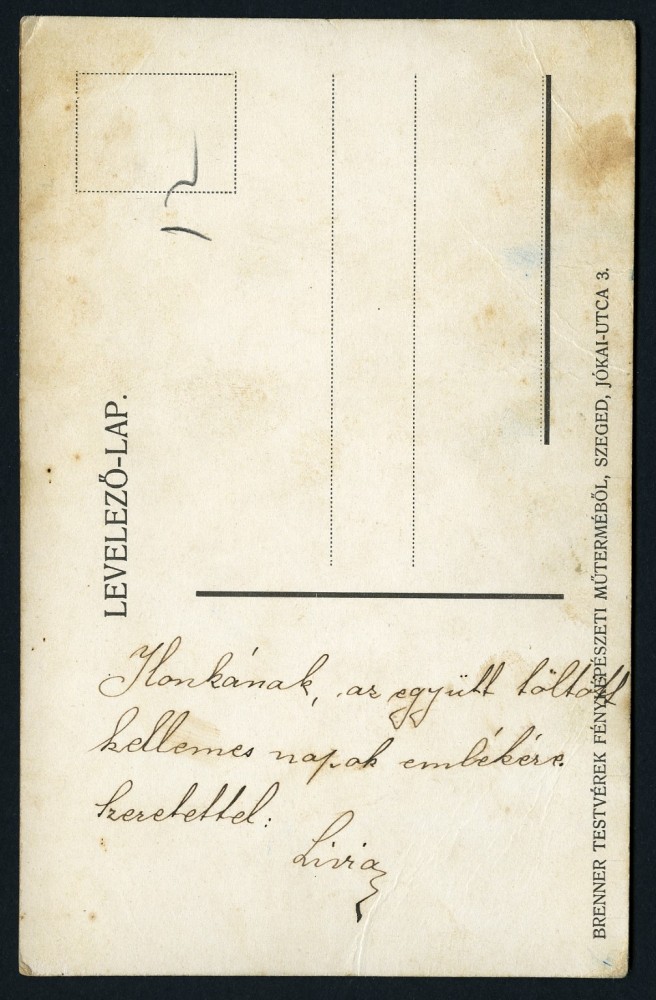 12
LEVELEZŐ-LAP.
Ilonkának, az együtt töltött
kellemes napok emlékére
Szeretettel:
Livia
BRENNER TESTVÉREK FÉNYKÉPÉSZETI MŰTERMÉBŐL, SZEGED, JÓKAI-UTCA 3.